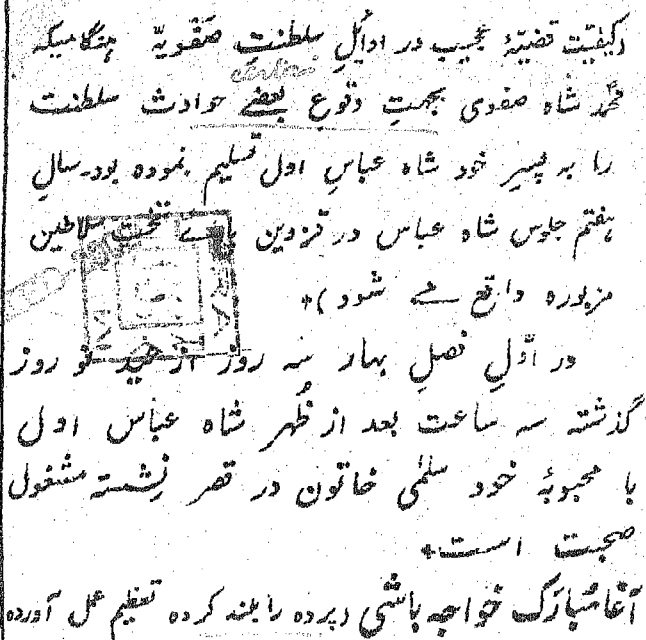 (کیفیّت قضیّهٔ عجیب در اوائلِ سلطنتِ صفویّه هنگامیکه
محمّد شاه صفوی بجهتِ وقوعِ بعضے حوادث سلطنت
را به پسرِ خود شاه عباسِ اول تسلیم نموده بود۔ سالِ
هفتم جلوس شاه عباس در قزوین پاے تختِ سلاطین
مزبوره واقع مے شود)+
در اوّلِ فصلِ بهار سه روز از عید نو روز
گذشته سه ساعت بعد از ظُهر شاه عباس اول
با محبوبهٔ خود سلمٰی خاتون در قصر نِشسته مشغول
صحبت است+
آغا مُبارَک خواجه باشی (پرده را بلند کرده تعظیم عمل آورده